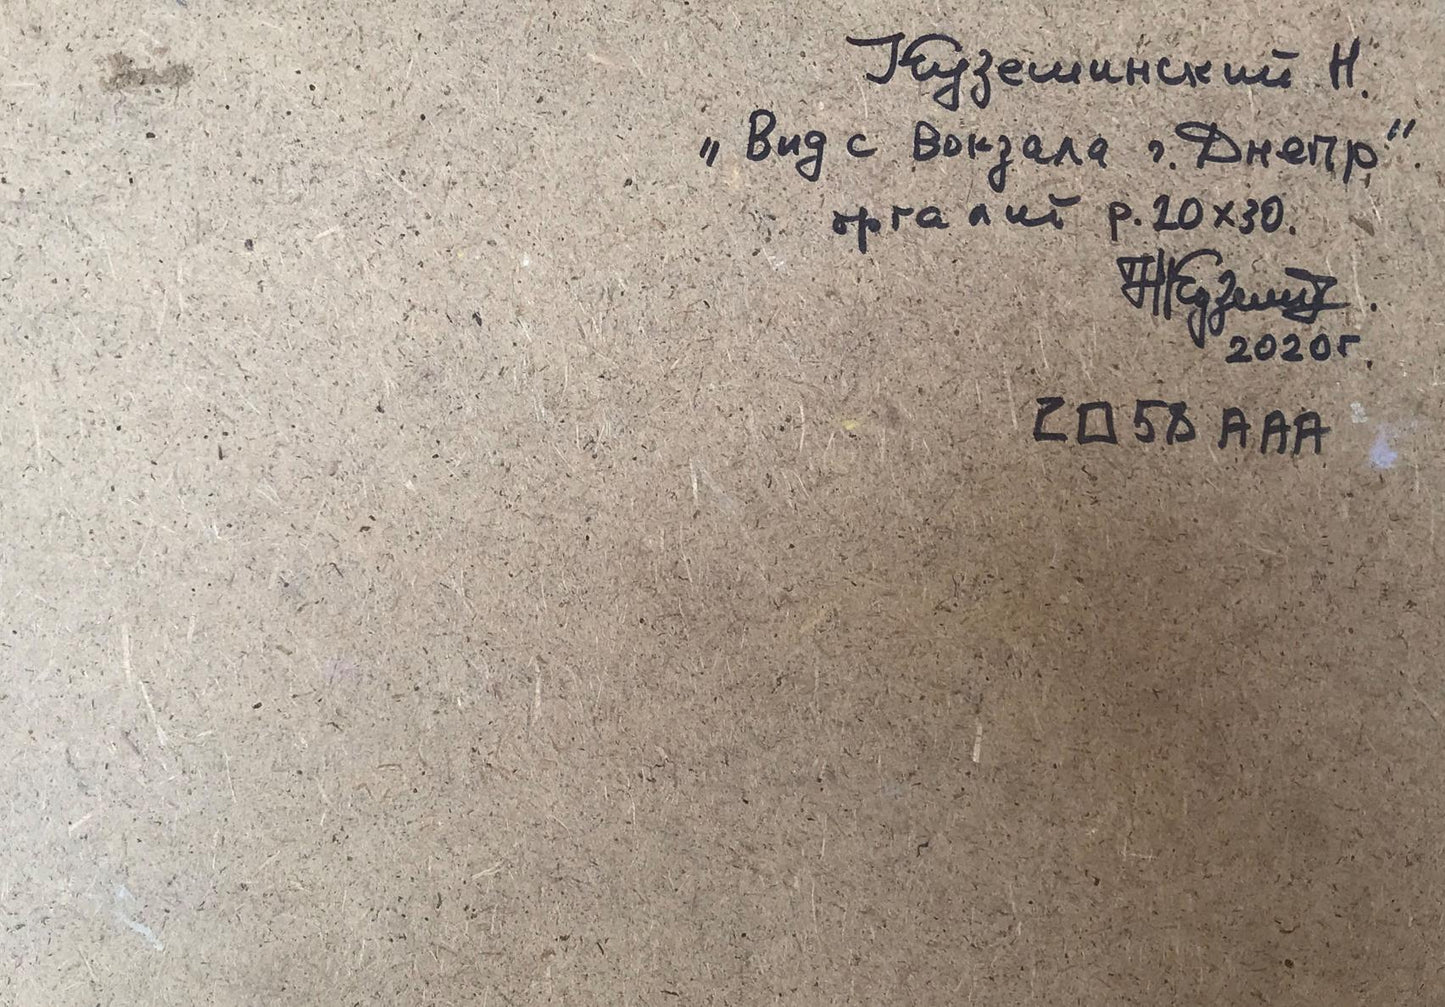 Кудземинский Н.
„Вид с Вокзала г. Днепр".
оргалит р. 20х30.
2020г.
2058 ААА